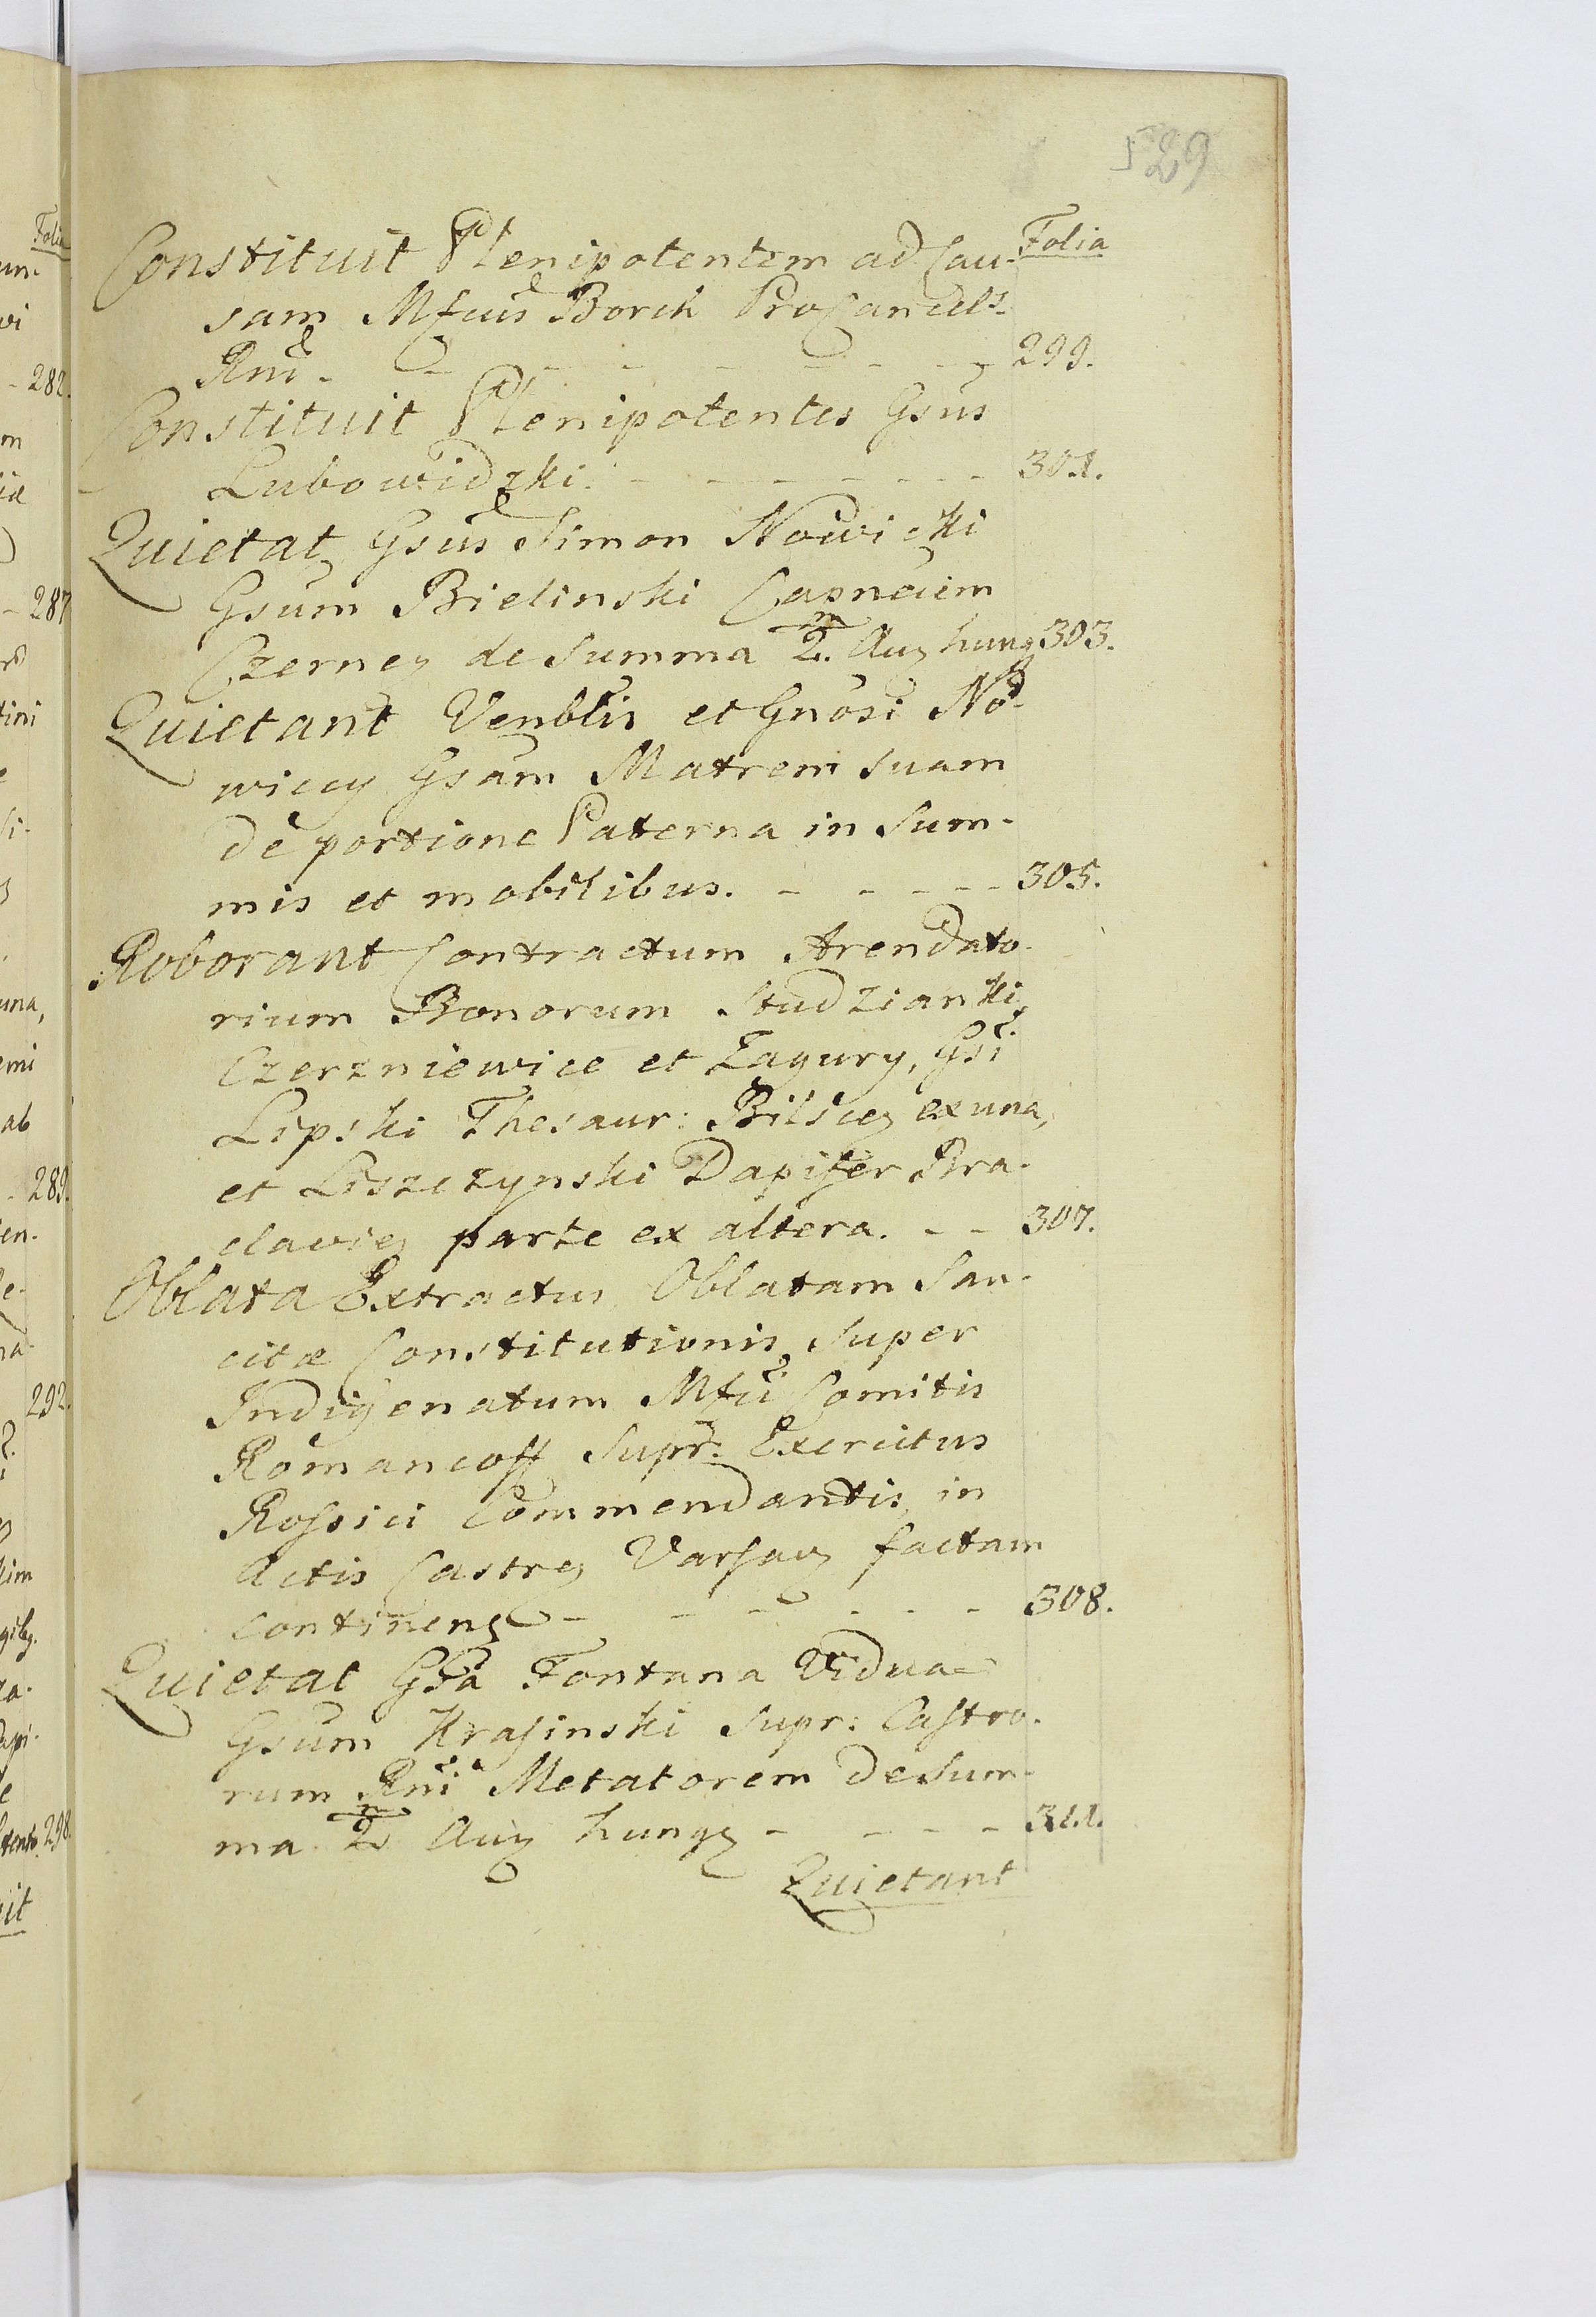 529
Folia
Constituit Plenipotentem ad Cau-
sam Mfcus Borch ProCancell.
Rni. - - - - - - - 299.
Constituit Plenipotentes Gsus
Lubowidzki. - - - - - - - 301.
Quietat Gsus Simon Nowicki
Gsum Bielinski Capneum
Czernen de Summa 2. Aug hung 303.
Quietant Venblis et Gnosi No-
wiccy Gsam Matrem suam
de portione Paterna in Sum-
mis et mobilibus. - - - - - 305.
Roborant Contractum Arendato-
rium Bonorum Studzianki,
Czerzniewice et Zagury, Gsi
Lipski Thesaur: Bilscen ex una,
et Liszczynski Dapifer Bra-
clavien parte ex altera. - - 307.
Oblata Extractus Oblatam San-
citæ Constitutionis super
Indigenatum Mfci Comitis
Romancoff Supr. Exercitus
Rossici Commendantis, in
Actis Castren Varsav factam
continens - - - - - - 308.
Quietat Gsa Fontana Vidua
Gsum Krasinski Supr: Castro-
rum Rni Metatorem de Sum-
ma 2 Aug hung - - - - 311.
Quietant